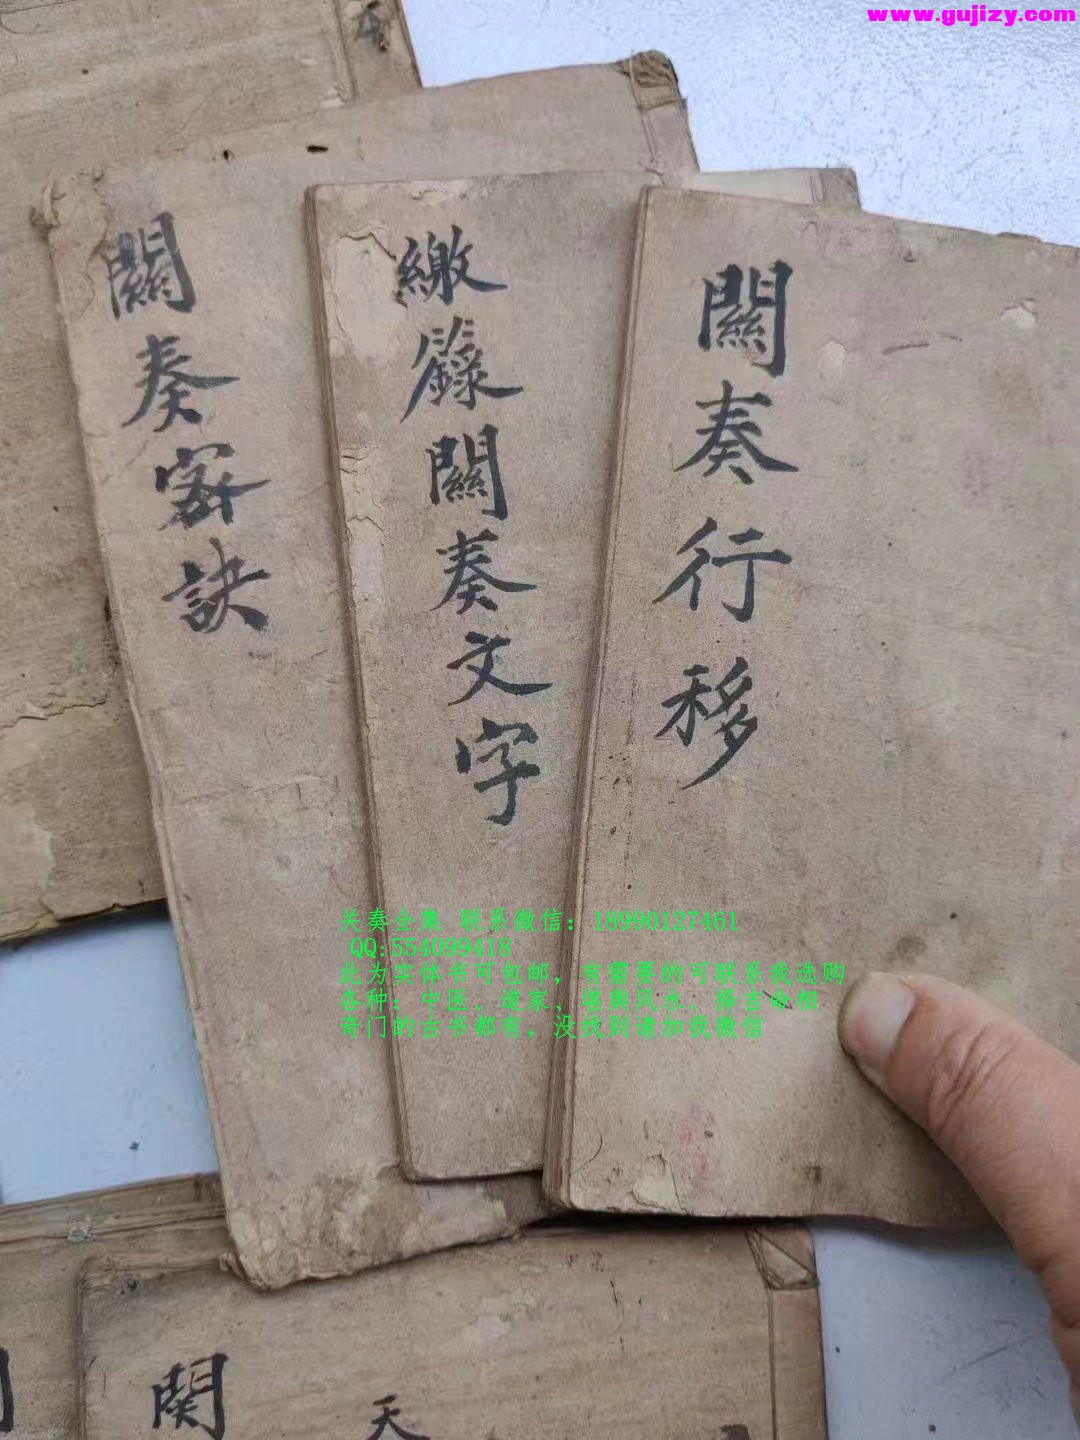 www.gujizy.com
關奏行移
繳籙關奏文字
關奏密訣
关奏全集 联系微信：18990127461
QQ:554099418
此为实体书可包邮，有需要的可联系我选购
各种：中医、道家、堪舆风水、择吉命相
奇门的古书都有，没找到请加我微信
関
天